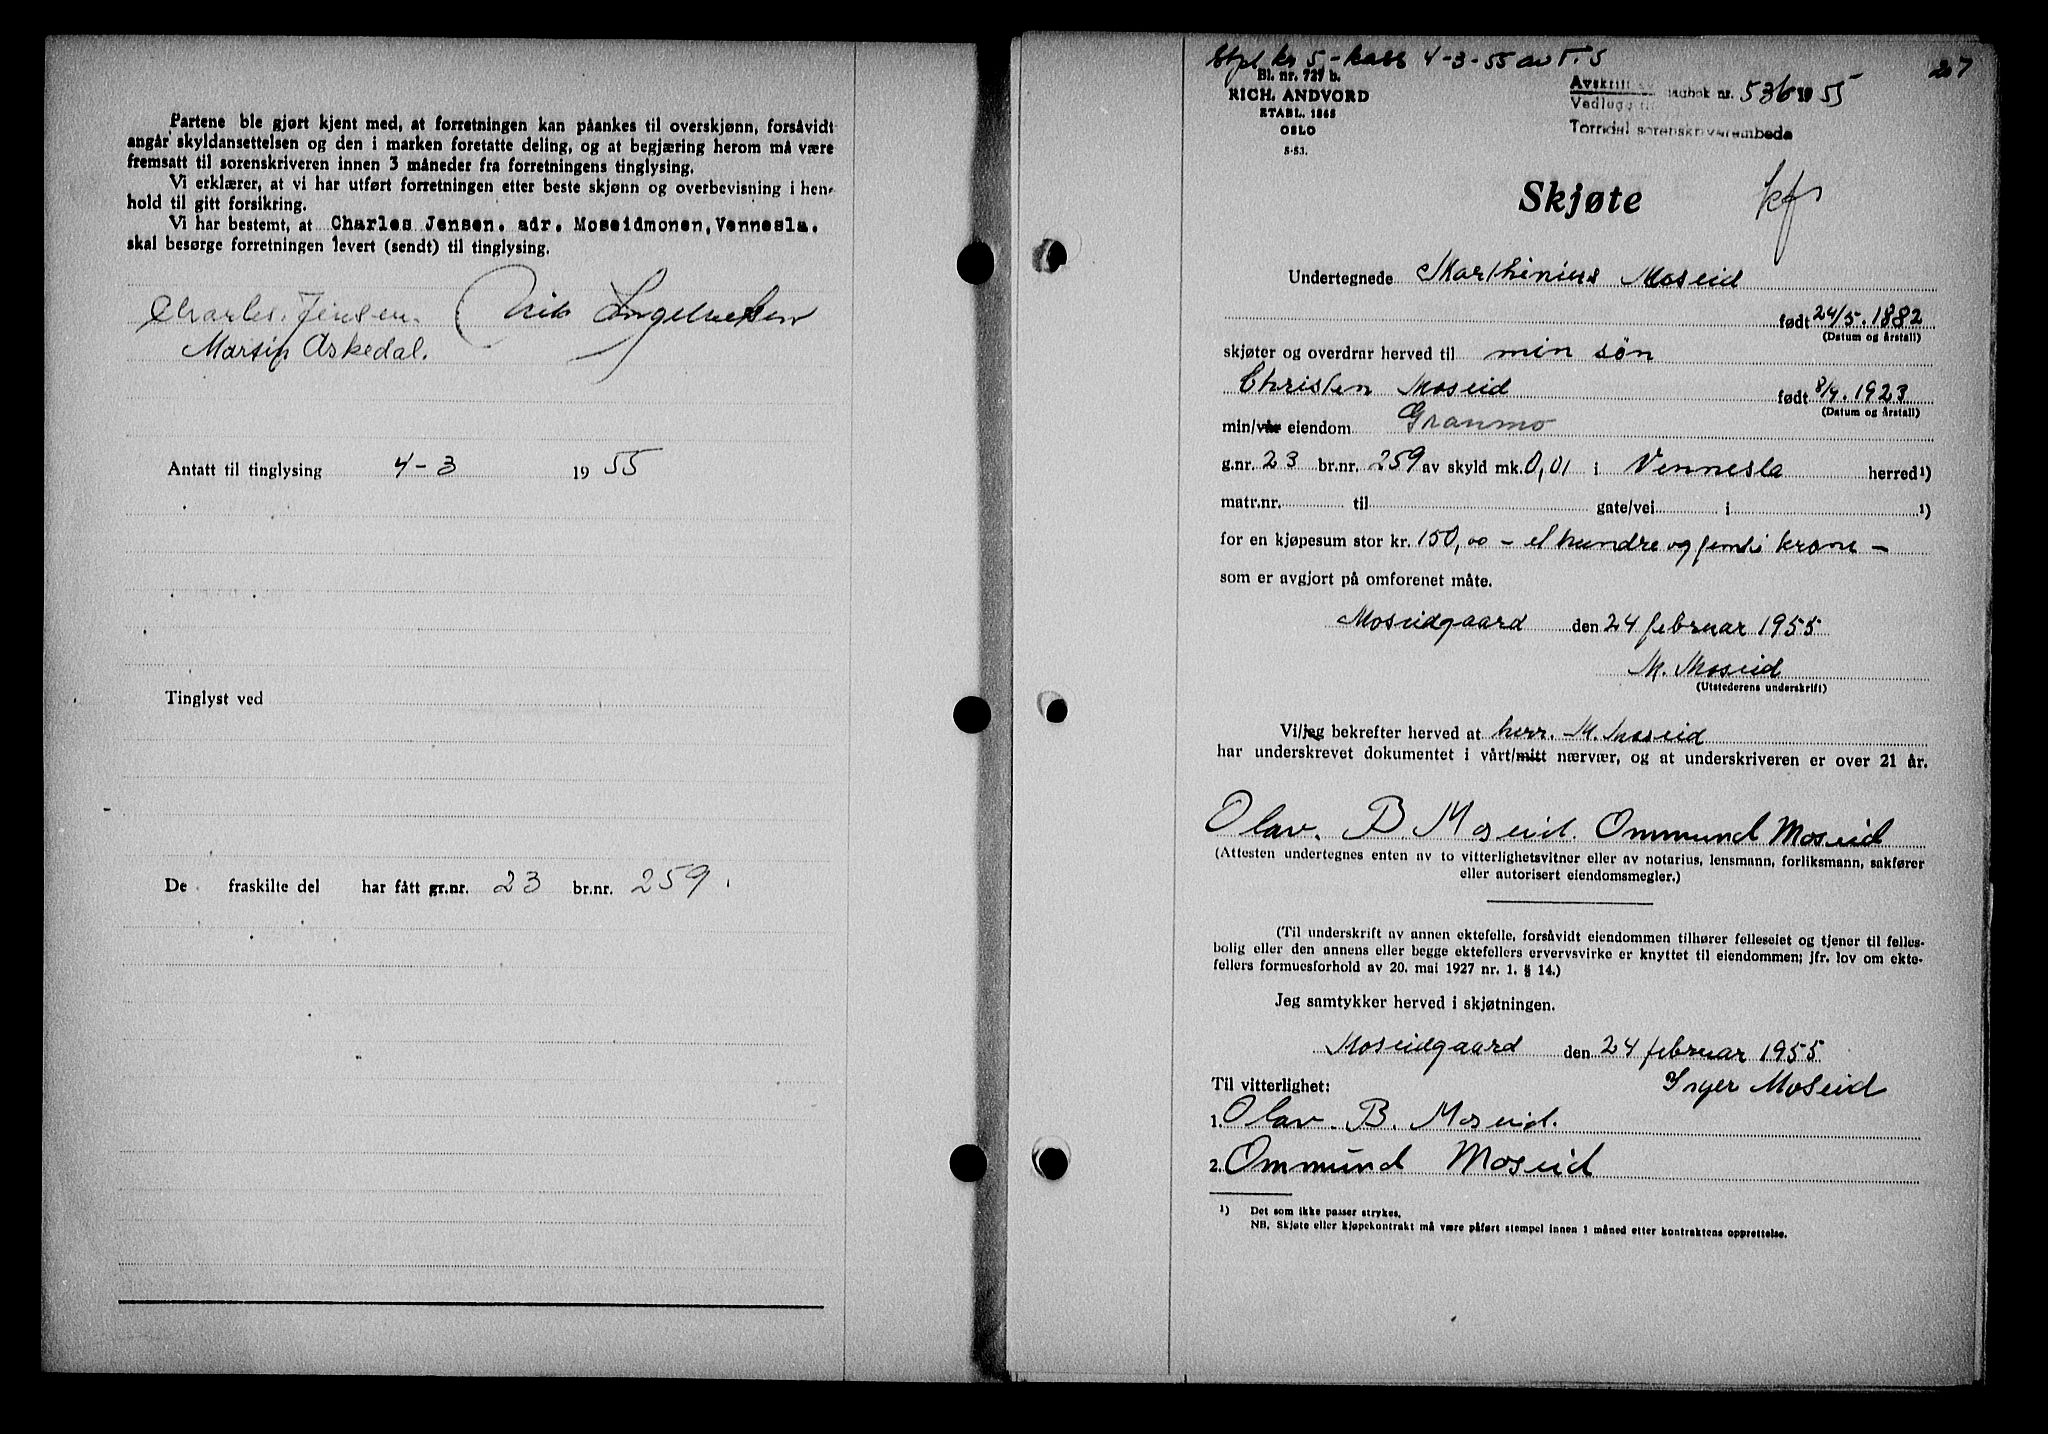 Partene ble gjort kjent med, at forretningen kan påankes til overskjønn, forsåvidt
angår skyldansettelsen og den i marken foretatte deling, og at begjæring herom må være
fremsatt til sorenskriveren innen 3 måneder fra forretningens tinglysing.
Vi erklærer, at vi har utført forretningen etter beste skjønn og overbevisning i hen-
hold til gitt forsikring.
Vi har bestemt, at Charles Jensen. adr. Moseidmonen, Vennesla.
skal besørge forretningen levert (sendt) til tinglysing.
Charles. Jensen.
Martin Askedal.
Antatt til tinglysing 4-3 1955
Tinglyst ved
De fraskilte del har fått gr.nr. 23 br.nr. 259.
Stpl kr 5,- kass 4-3-55 av T.S
207
Bl. nr. 727 b.
RICH. ANDVORD
ETABL. 1865
OSLO
5-53.
Avskrift
Vedlegg til dagbok nr. 536 1955
Torridal sorenskriverembede
Skjøte
Undertegnede Marthinius Moseid
født 24/5. 1882
(Datum og årstall)
skjøter og overdrar herved til min søn
Christen Moseid født 8/4. 1923
(Datum og årstall)
min/vår eiendom Granmo
g.nr. 23 br.nr. 259 av skyld mk. 0,01 i Vennesla herred 1)
matr.nr. til gate/vei i 1)
for en kjøpesum stor kr. 150,00 - et hundre og femti krone -
som er avgjort på omforenet måte.
Moseidgaard den 24 februar 1955
M. Moseid
(Utstederens underskrift)
Vi/jeg bekrefter herved at herr. M. Moseid
har underskrevet dokumentet i vårt/mitt nærvær, og at underskriveren er over 21 år.
Olav. B Moseid. Ommund Moseid
(Attesten undertegnes enten av to vitterlighetsvitner eller av notarius, lensmann, forliksmann, sakfører
eller autorisert eiendomsmegler.)
(Til underskrift av annen ektefelle, forsåvidt eiendommen tilhører felleseiet og tjener til felles-
bolig eller den annens eller begge ektefellers ervervsvirke er knyttet til eiendommen; jfr. lov om ekte-
fellers formuesforhold av 20. mai 1927 nr. 1. § 14.)
Jeg samtykker herved i skjøtningen.
Moseidgaard den 24 februar 1955
Til vitterlighet: Inger Moseid
1. Olav. B. Moseid.
2. Ommund Moseid
1) Det som ikke passer strykes.
NB. Skjøte eller kjøpekontrakt må være påført stempel innen 1 måned etter kontraktens opprettelse.